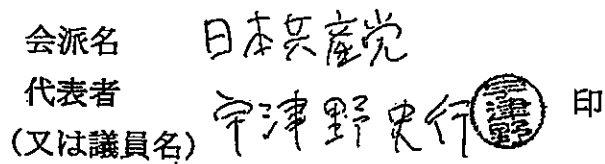 会派名 日本共産党
代表者
(又は議員名) 宇津野史行 宇津野 印